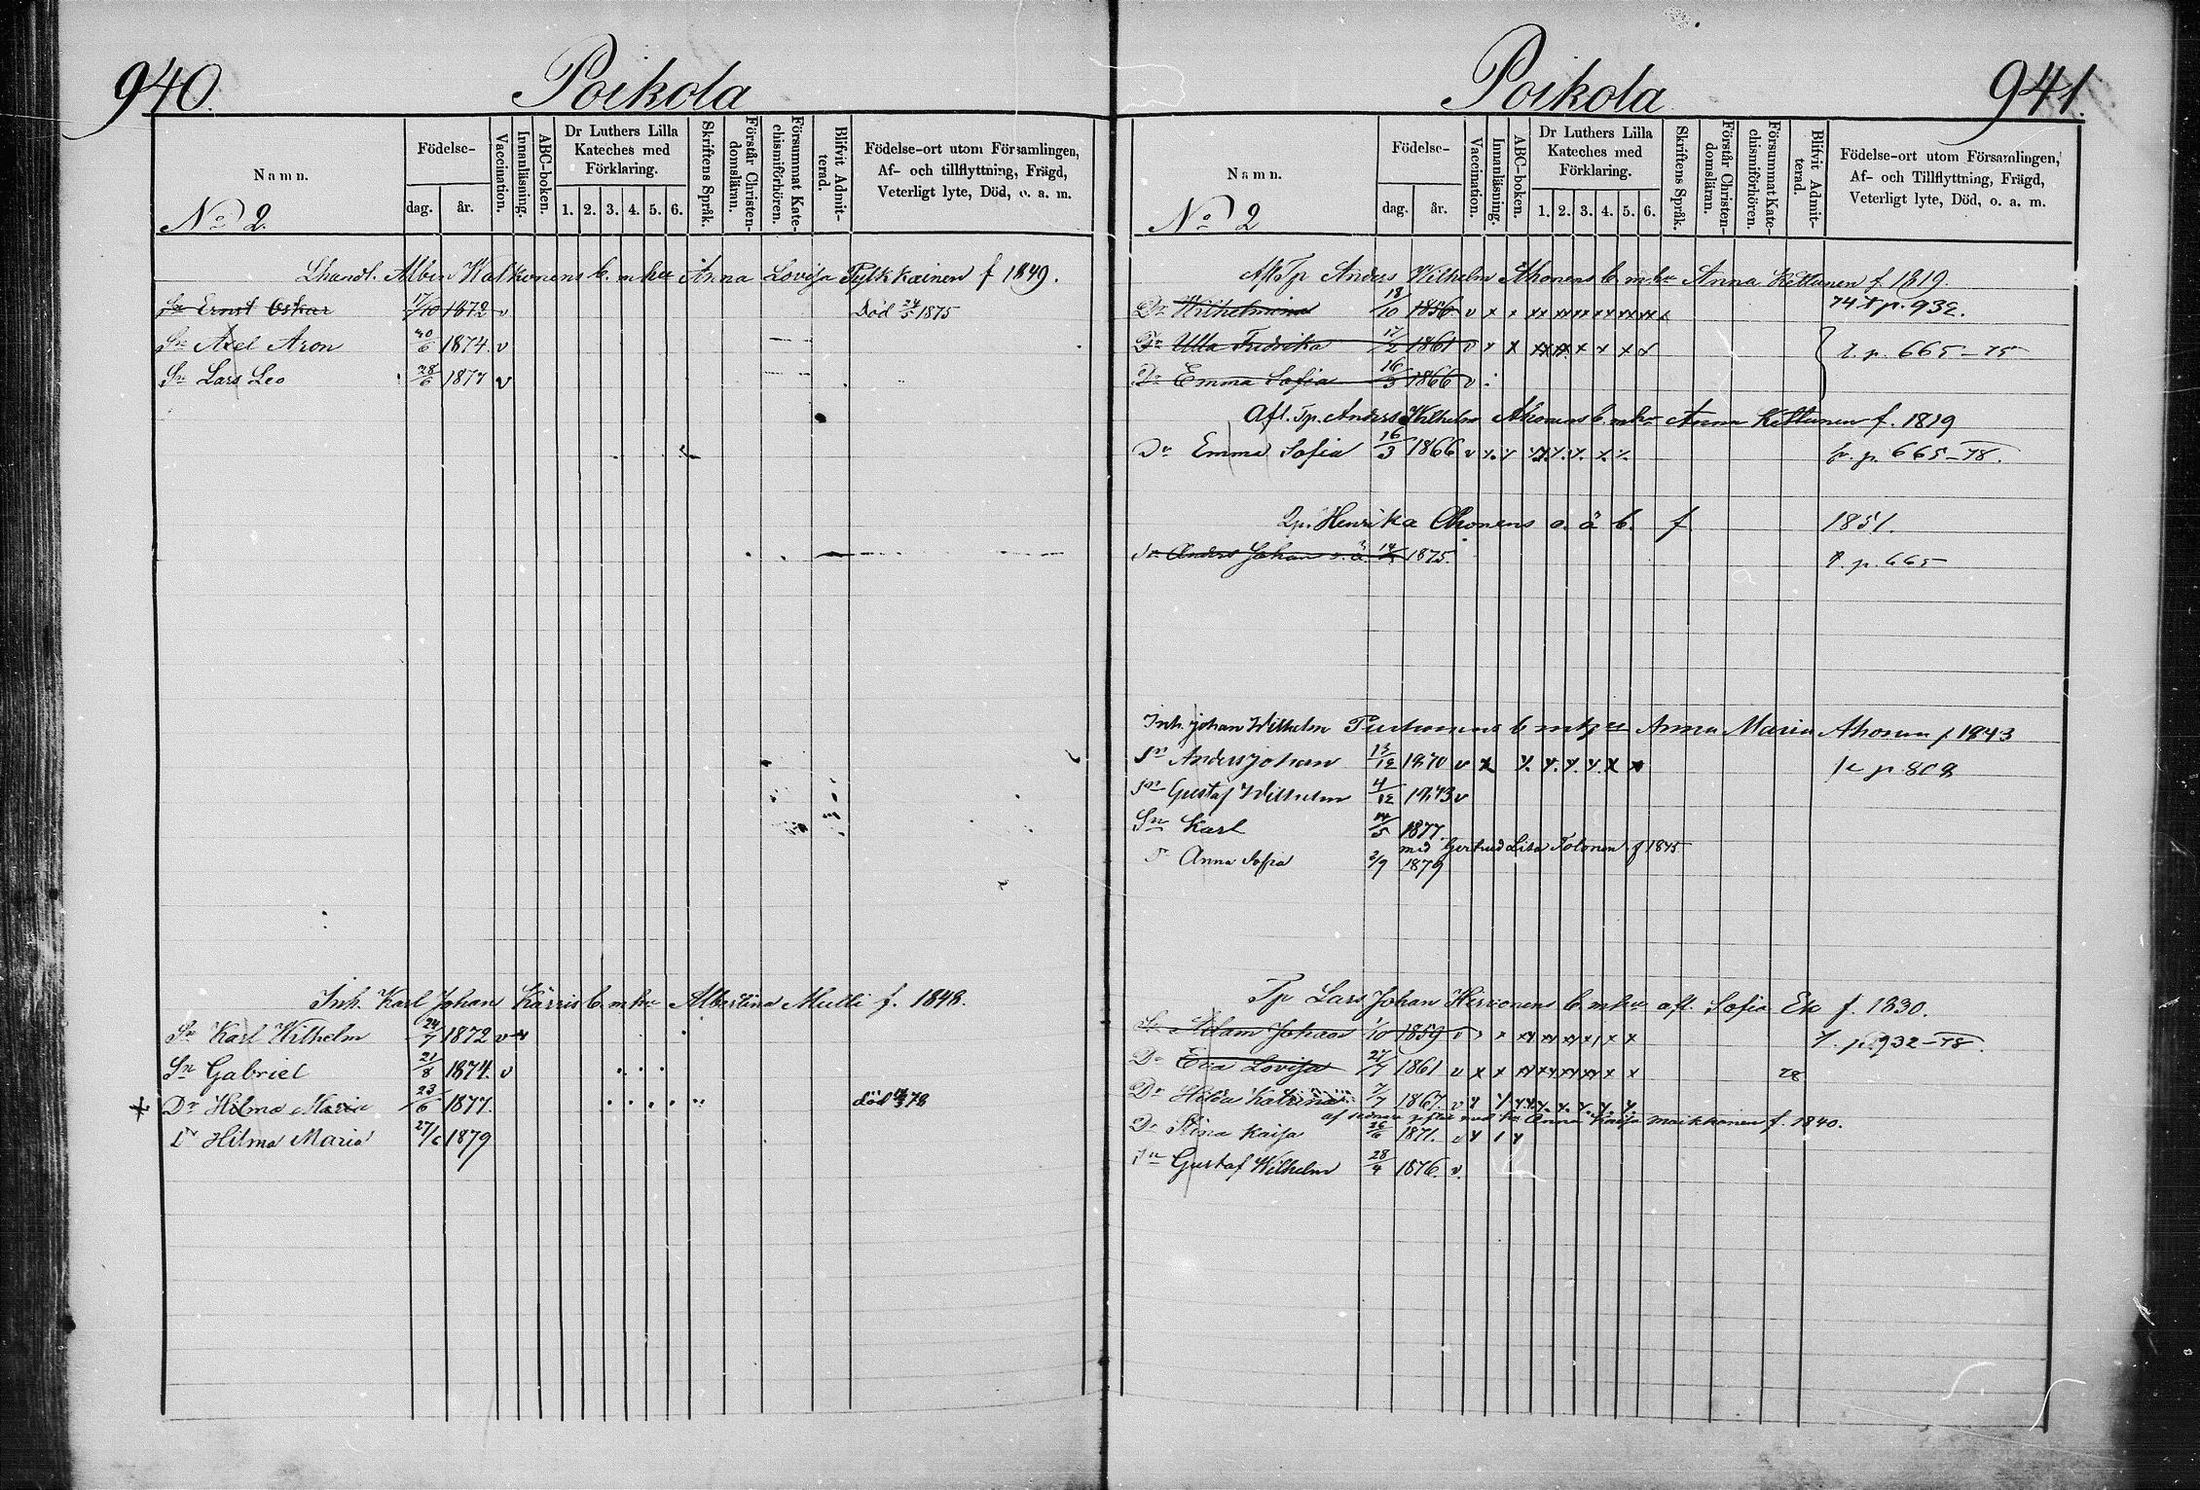 940.
Poikola
Namn.
No 2.
Födelse-
dag.
år.
Vaccination.
Innanläsning.
ABC-boken.
Dr Luthers Lilla
Kateches med
Förklaring.
1. 2. 3. 4. 5. 6.
Skriftens Språk.
Förstår Christen-
domslämn.
Försummat Kate-
chismiförhören.
Blifvit Admit-
terad.
Födelse-ort utom Församlingen,
Af- och tillflyttning, Frägd,
Veterligt lyte, Död, o. a. m.
Lhandl. Albin Walkonens b. m hu Anna Lovisa Pylkkainen f 1849.
Sn Ernst Oskar 17/10 1872 v Död 24/5 1875
Sn Axel Aron 1874. v
Sn Lars Leo 28/6 1877 v
Inh. Karl Johan Kärris b. m hu Albertina Multi f. 1848.
Sn Karl Wilhelm 24/7 1872 v
Sn Gabriel 21/8 1874. v
Dr Hilma Maria 23/6 1877. död 78
Dr Hilma Maria 27/6 1879
941.
Poikola
Namn.
No 2
Födelse-
dag.
år.
Vaccination.
Innanläsning.
ABC-boken.
Dr Luthers Lilla
Kateches med
Förklaring.
1. 2. 3. 4. 5. 6.
Skriftens Språk.
Förstår Christen-
domsläran.
Försummat Kate-
chismiförhören.
Blifvit Admit-
terad.
Födelse-ort utom Församlingen,
Af- och Tillflyttning, Frägd,
Veterligt lyte, Död, o. a. m.
Tp Anders Wilhelm Ahonens b m hu Anna Kettunen f 1819.
Dr Wilhelmina 18/10 1856 v x x xx xx xx xx x 74 t p. 932.
Dr Ulla Fredrika 17/2 1861 v x x xx xx x x x x t. p. 665-75
Dr Emma Sofia 16/3 1866 v
Afl. Tp. Anders Wilhelm Ahonens b. m hu Anna Kettunen f. 1819
Dr Emma Sofia 16/3 1866 v p. 665-78.
Henrika Ahonens o. ä b. f 1851.
Sn Anders Johan o. ä. 1875. p. 665
Inh. Johan Wilhelm b m hu Anna Maria Ahonen f 1843
Sn Anders Johan 13/12 1870 v p. 808
Sn Gustaf Wilhelm 4/12 1873 v
Sn Karl 14/5 1877.
med Gertrud Lisa Tolonen f 1845
Anna Sofia 2/9 1879
Tp Lars Johan Hirvonens b m hu afl. Sofia Ek f. 1830.
Sn Adam Johan 1/10 1859 v p. 932-78.
Dr Eva Lovisa 27/7 1861 v x x 78
Dr Hilda Katrina 7/7 1867. v
gifta med Anna Kaisa Maikkonen f. 1840.
Dr Stina Kaisa 26/6 1871. v
Sn Gustaf Wilhelm 28/4 1876. v.